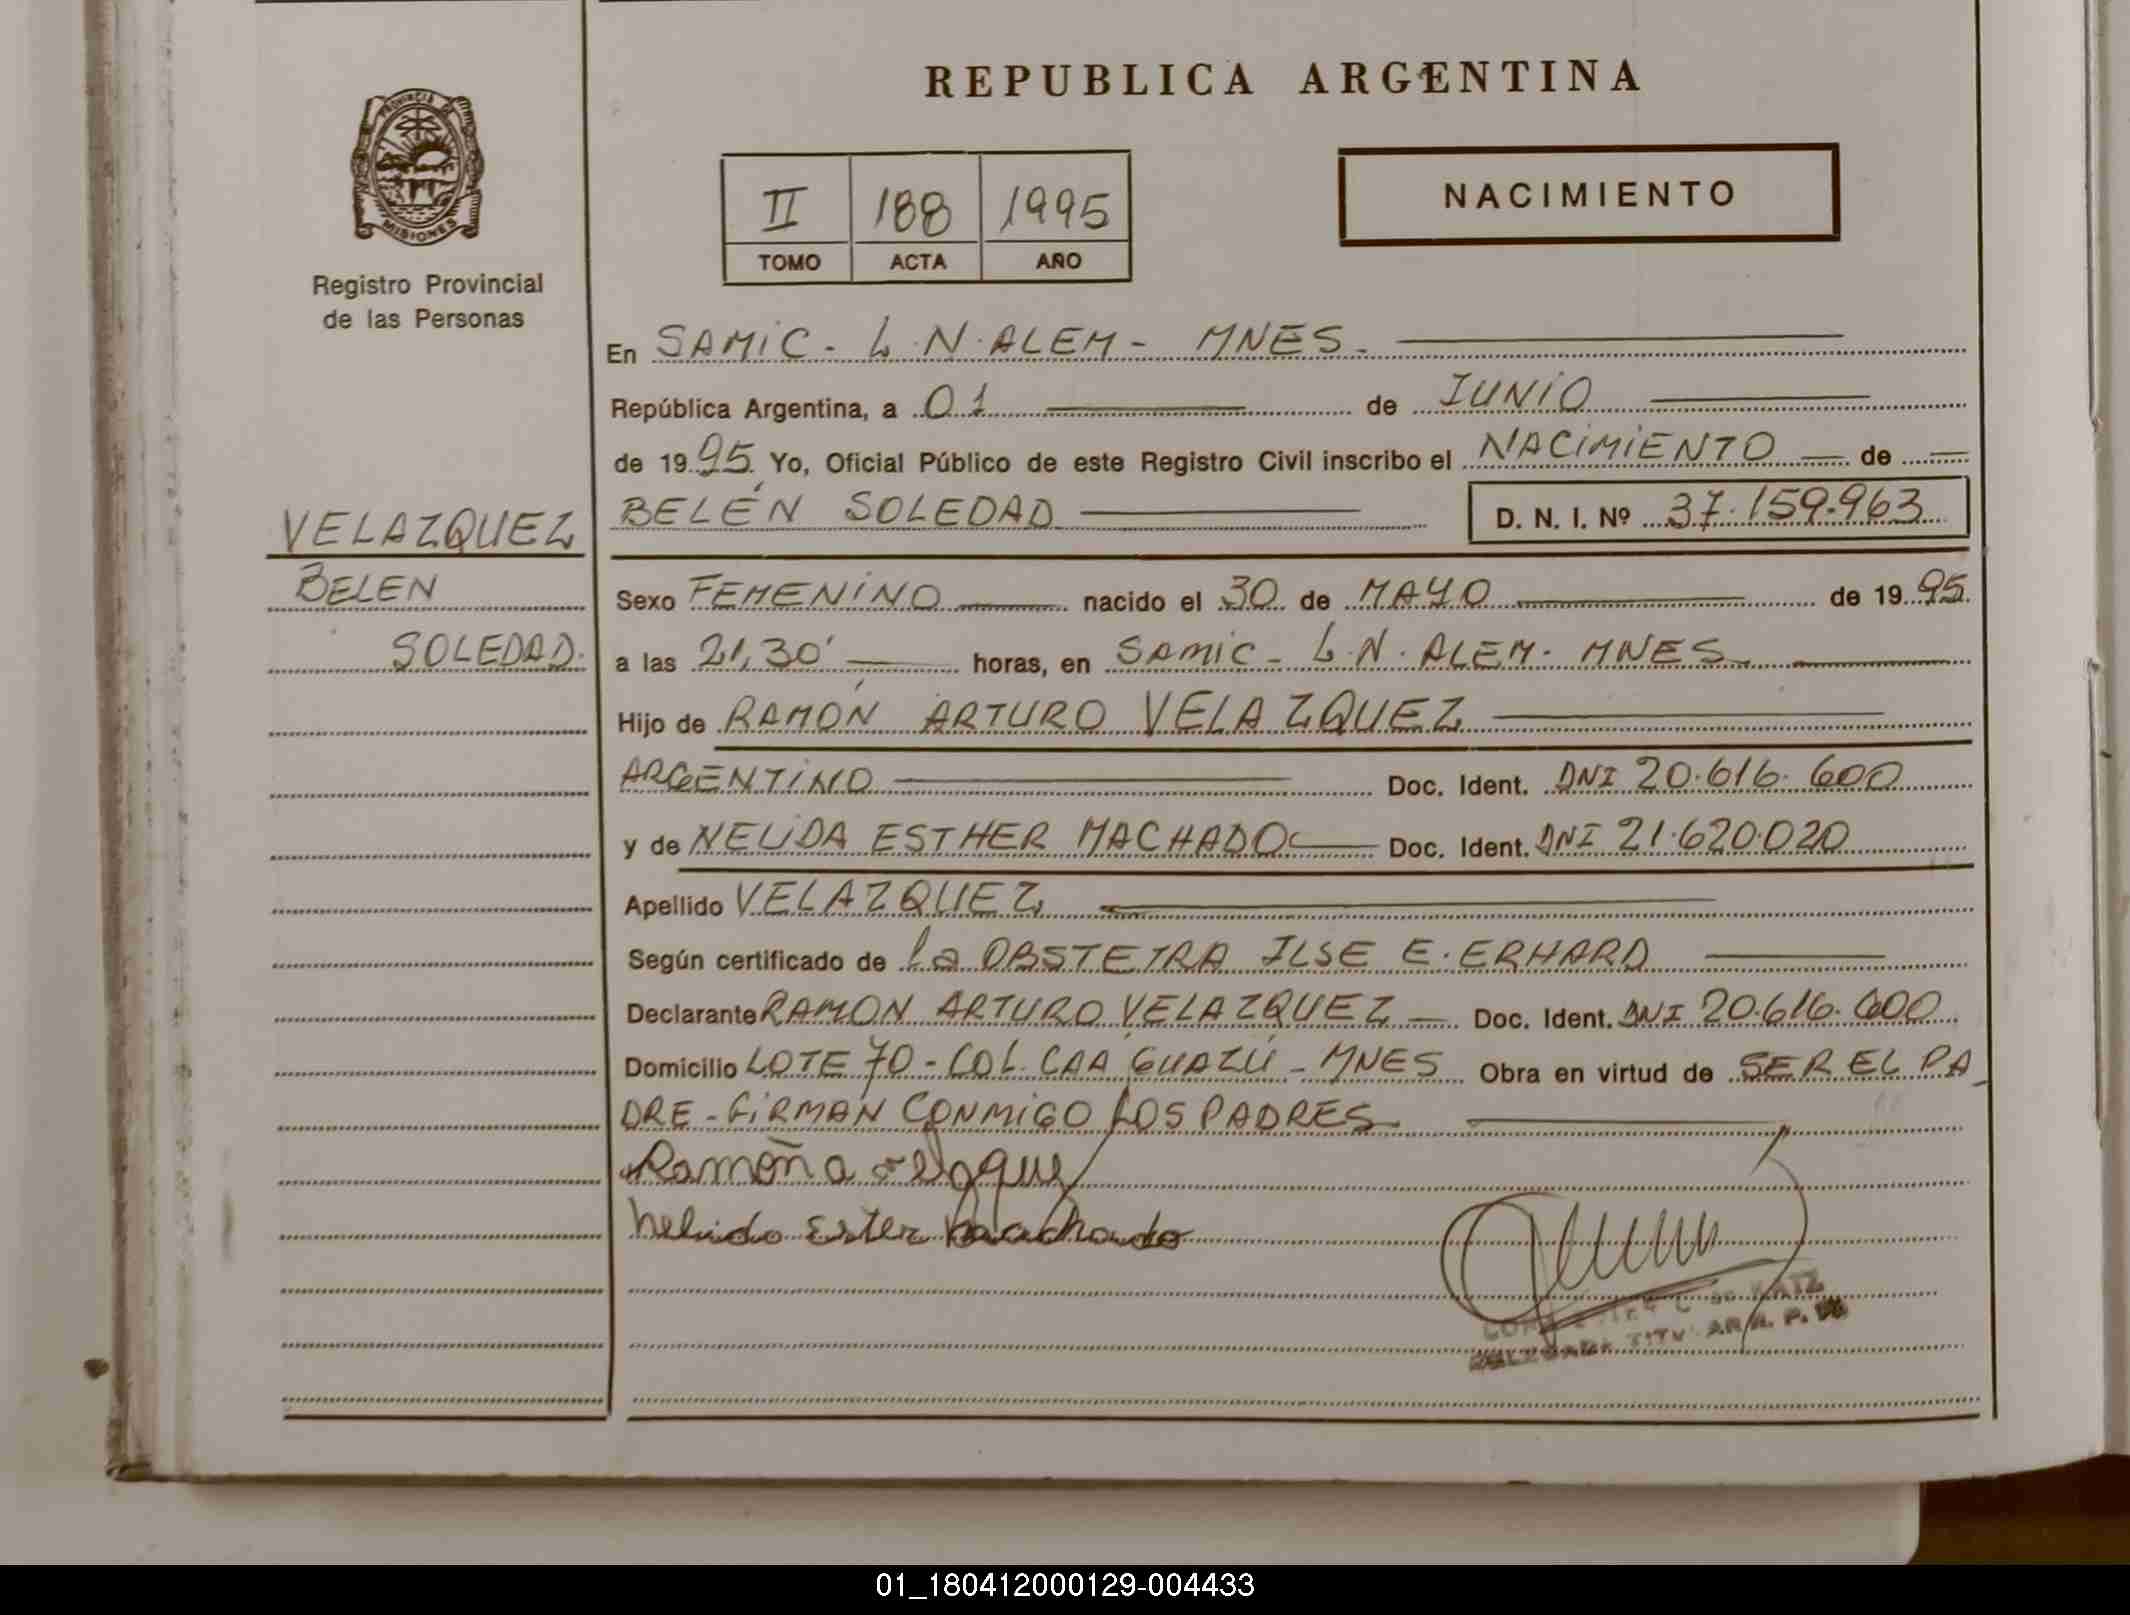 REPUBLICA ARGENTINA
PROVINCIA DE
MISIONES
Registro Provincial
de las Personas
II 188 1995
TOMO ACTA AÑO
NACIMIENTO
En SAMIC - L.N. ALEM - MNES.
República Argentina, a 01 de JUNIO
de 1995 Yo, Oficial Público de este Registro Civil inscribo el NACIMIENTO de
BELÉN SOLEDAD D. N. I. Nº 37.159.963
VELAZQUEZ
BELEN
SOLEDAD.
Sexo FEMENINO nacido el 30 de MAYO de 1995.
a las 21,30' horas, en SAMIC - L.N. ALEM - MNES
Hijo de RAMÓN ARTURO VELAZQUEZ
ARGENTINO Doc. Ident. DNI 20.616.600
y de NELIDA ESTHER MACHADO Doc. Ident. DNI 21.620.020
Apellido VELAZQUEZ
Según certificado de la OBSTETRA ILSE E. ERHARD
Declarante RAMON ARTURO VELAZQUEZ Doc. Ident. DNI 20.616.600
Domicilio LOTE 70 - COL. CAA GUAZÚ - MNES Obra en virtud de SER EL PA
DRE - FIRMAN CONMIGO LOS PADRES
Ramón a
Ester machado
01_180412000129-004433